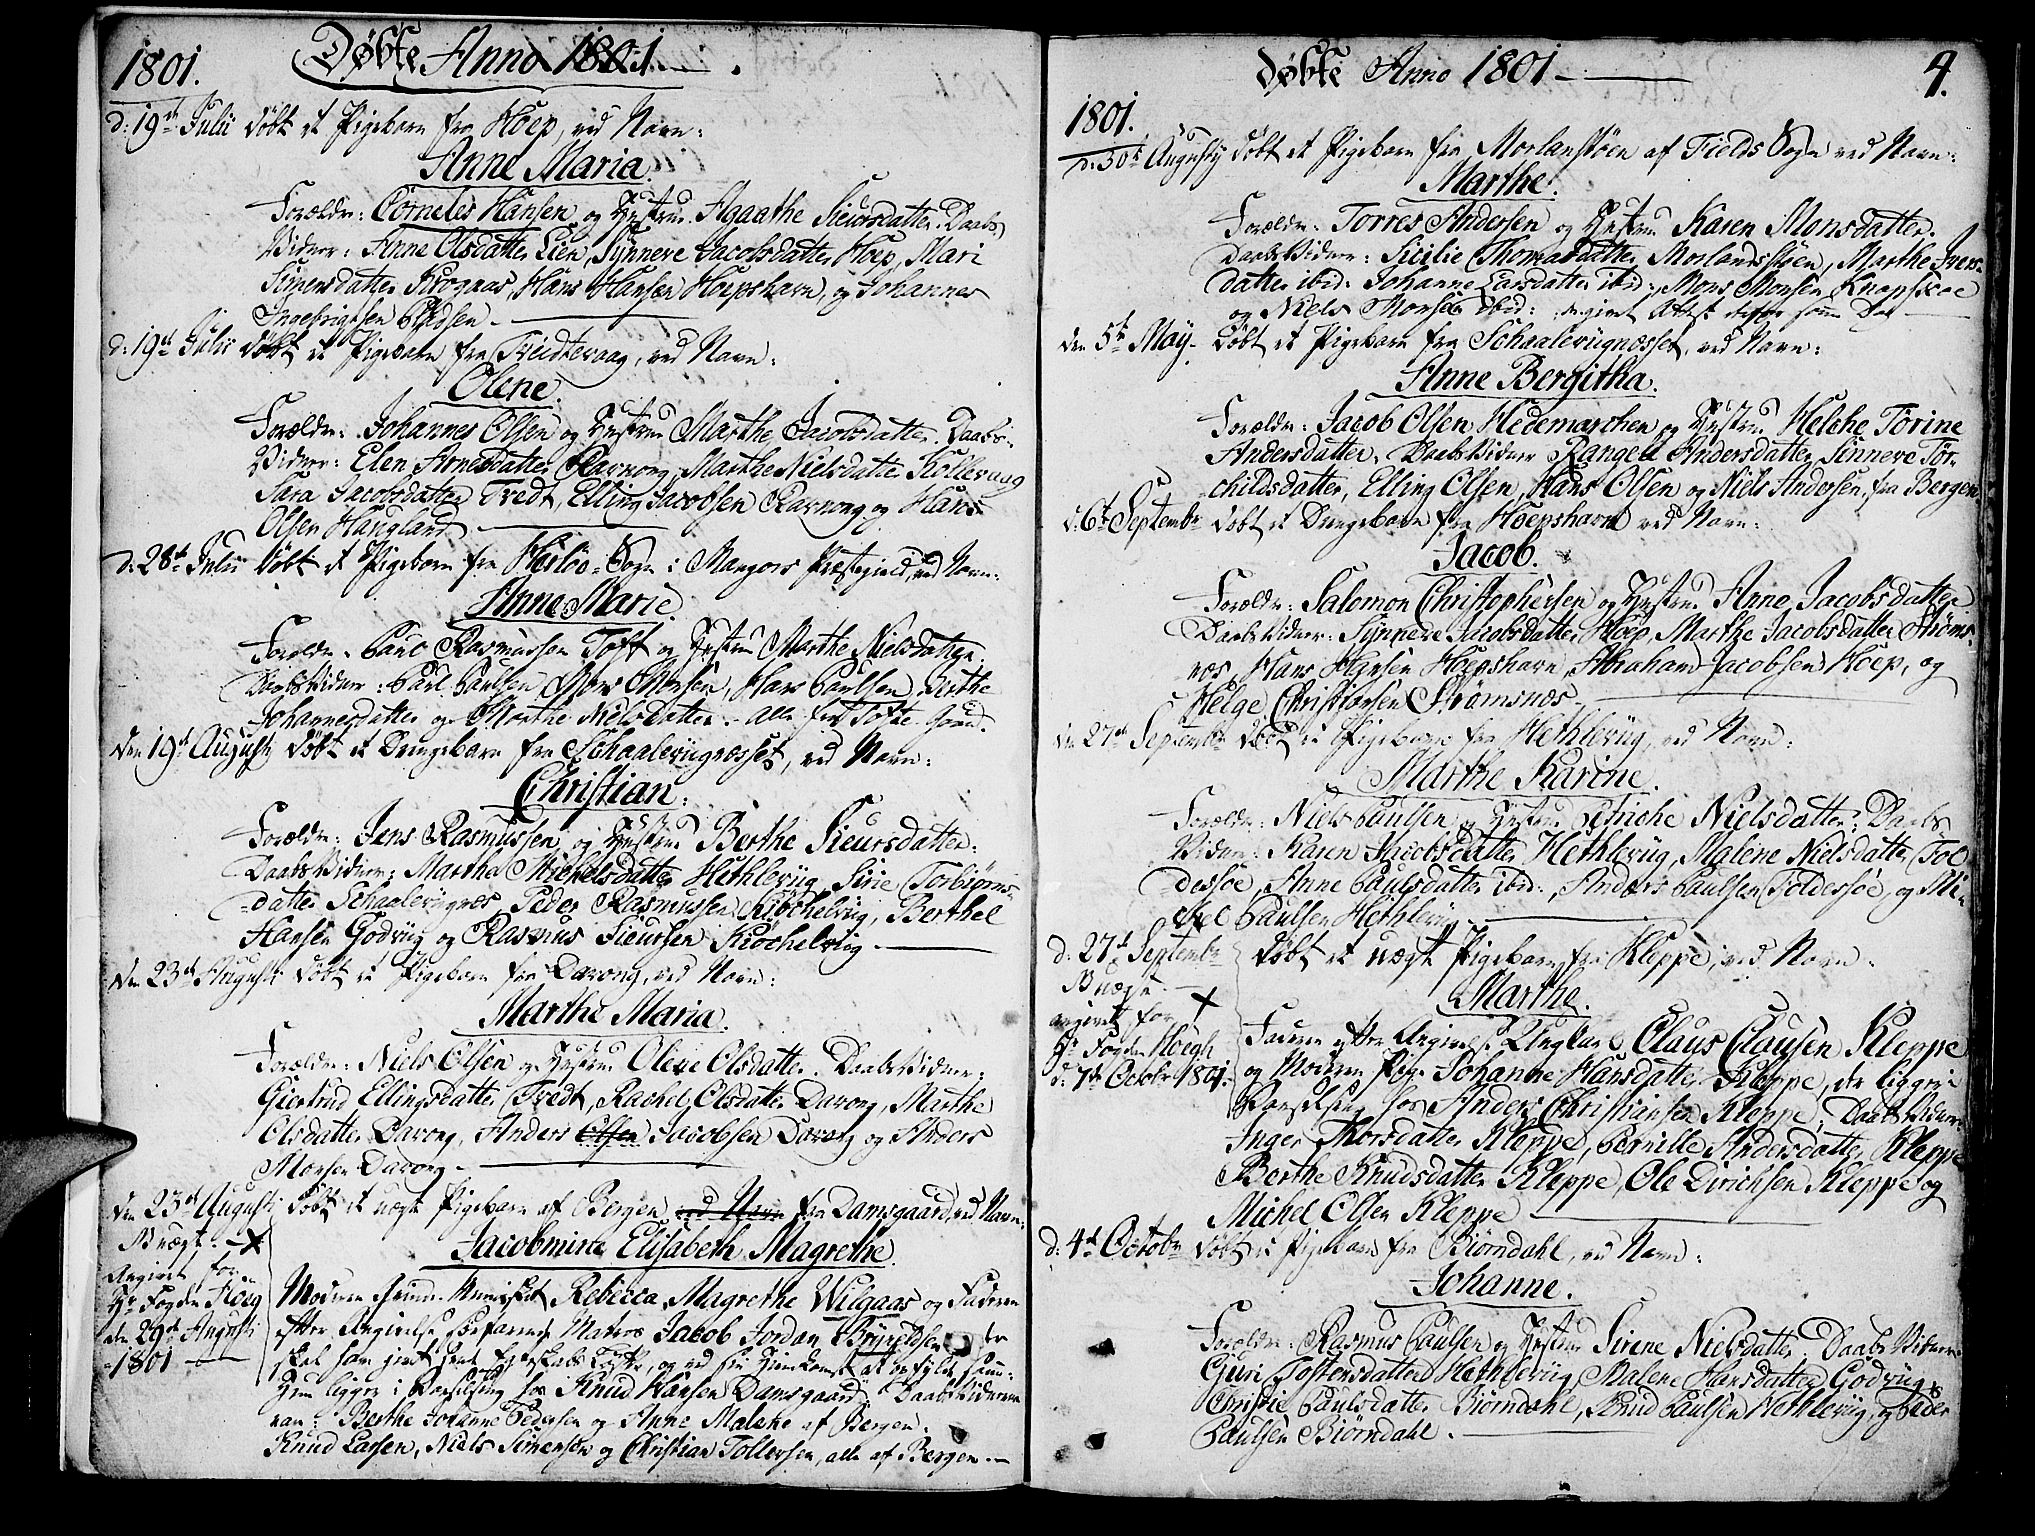 1801. Døbte Anno 1801.
d: 19de Julii døbt et Pigebarn fra Hoep, ved Navn:
Anne Maria.
Forældre: Corneles Hansen og Hustrue Agaathe Sieursdatter. Daabs
Vidner: Anne Olsdatter Lien, Synneve Jacobsdatter Hoep, Mari
Simensdatter Krogaas, Hans Hansen Hoepshavn, og Johannes
Ingebrigtsen
d: 19de Julii døbt et Pigebarn fra Tredtevaag, ved Navn:
Olene.
Forældre: Johannes Olsen og Hustrue Marthe Jacobsdatter. Daabs-
Vidner: Elen Arnesdatter Ravnong, Marthe Nielsdatter Kollevaag
Sara Jacobsdatter Tredt, Elling Jacobsen Ravnong og Hans
Olsen Haugland
d: 28de Julii døbt et Pigebarn fra Herløe-Sogn i Mangers Præstegield, ved Navn:
Anne Marie
Forældre: Paul Rasmussen Toft og Hustrue Marthe Nielsdatter.
Daabs Vidner: Carl Paulsen, Mons Monsen, Hans Paulsen, Berthe
Johannesdatter og Marthe Nielsdatter - alle fra Tofte
den 19de Augusti døbt et Drengebarn fra Schaaleviignæsset, ved Navn:
Christian:
Forældre: Jens Rasmussen og Hustrue Berthe Sieursdatter:
Daabs Vidner: Marthe Michelsdatter Hethleviig, Sirie Torbiørns-
datter Schaaleviignæs, Peder Rasmussen Kiøchelviig, Berthel
Hansen Godviig og Rasmus Sieursen Kiøchelviig
den 23de Augusti døbt et Pigebarn fra Davong, ved Navn:
Marthe Maria.
Forældre: Niels Olsen og Hustrue Olene Olsdatter. Daabs Vidner:
Giertrud Ellingsdatter Tredt, Rachel Olsdatter Davong, Marthe
Olsdatter Davong, Anders Olsen Jacobsen Davong og Anders
Monsen Davong
den 23de Augusti døbt et uægte Pigebarn af Bergen ved Navn fra Damsgaard, ved Navn:
Jacobmine Elisabeth Magrethe.
B: uægt. - X
Angivet for
Hr Fogden Høeg
den 29de Augusti
1801
Moderen Rebecca Magrethe Wilgaas og Faderen
efter Angivelse Matros Jacob Jordan Brynildsen
skal som og ved sin Hiemkomst
ligger i Barselseng hos Knud Hansen Damsgaard. Daabs Vidnerne
var: Berthe Johanne Pedersen og Anne Malene af Bergen.
Knud Larsen, Niels Simensen og Christian Tollevsen, alle af Bergen
Døbte Anno 1801 4.
1801.
d: 30te Augusty døbt et Pigebarn fra Morlanstøen af Fields Sogn ved Navn:
Marthe.
Forældre: Torres Andersen og Hustrue Karen Monsdatter.
Daabs Vidner: Sicilie Thomasdatter Morlandstøen, Marthe Ivers-
datter ibid: Johanne Larsdatter ibid:, Mons Monsen Knapskoe
og Niels Monsen ibid: angivet Attest
den 5te May. døbt et Pigebarn fra Schaaleviignæsset, ved Navn:
Anne Bergitha.
Forældre: Jacob Olsen Hedemarchen og Hustrue Helche Torine
Andersdatter. Daabs Vidner Rangele Andersdatter, Sinneve Tor-
childsdatter, Elling Olsen, Hans Olsen og Niels Andersen, fra Bergen
d: 6te Septembr døbt et Drengebarn fra Hoepshavn ved Navn:
Jacob.
Forældre: Salomon Christophersen og Hustrue Anne Jacobsdatter
Daabs Vidner: Synneve Jacobsdatter Hoep, Marthe Jacobsdatter Strøms-
næs, Hans Hansen Hoepshavn, Abraham Jacobsen Hoep, og
Helge Christiansen Strømsnæs
den 27de Septembr døbt et Pigebarn fra Hethleviig, ved Navn:
Marthe Karine.
Forældre: Niels Paulsen og Hustrue Nielsdatter: Daabs
Vidner: Karen Jacobsdatter Hethleviig, Malene Nielsdatter Tol-
dessøe, Anne Paulsdatter ibid:, Anders Paulsen Toldessøe, og Mi-
chel Paulsen Hethleviig
d: 27de Septembr døbt et uægte Pigebarn fra Kleppe, ved Navn:
Marthe.
B: uægte.
angivet for X
Hr Fogden Høegh
d: 7de Octobr 1801.
Faderen efter Angivelse Ungkarl Claus Clausen Kleppe
og Moderen Pige Johanne Hansdatter Kleppe, der ligger i
Barselseng hos Anders Christiansen Kleppe. Daabs Vidner:
Inger Thorsdatter Kleppe, Pernille Andersdatter Kleppe
Berthe Knudsdatter Kleppe, Ole Dirichsen Kleppe og
Michel Olsen Kleppe
d: 4de Octobr døbt et Pigebarn fra Biørndahl, ved Navn:
Johanne.
Forældre: Rasmus Paulsen og Hustrue Sirene Nielsdatter. Daabs Vidner:
Guri Tostensdatter Hethleviig, Malene Hansdatter Godviig,
Christie Paulsdatter Biørndahl, Knud Paulsen Hethleviig, og Peder
Paulsen Biørndahl.